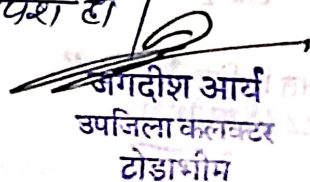 पेश हो
जगदीश आर्य
उपजिला कलक्टर
टोडाभीम